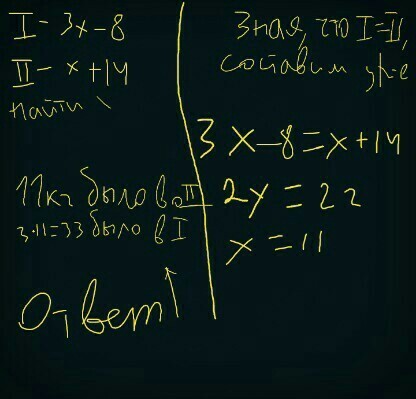 I - 3x - 8
II - x + 14
найти
11 кг было во II
3·11=33 было в I
Ответ↑
Зная, что I=II,
составим ур-е
3x-8=x+14
2y=22
x=11